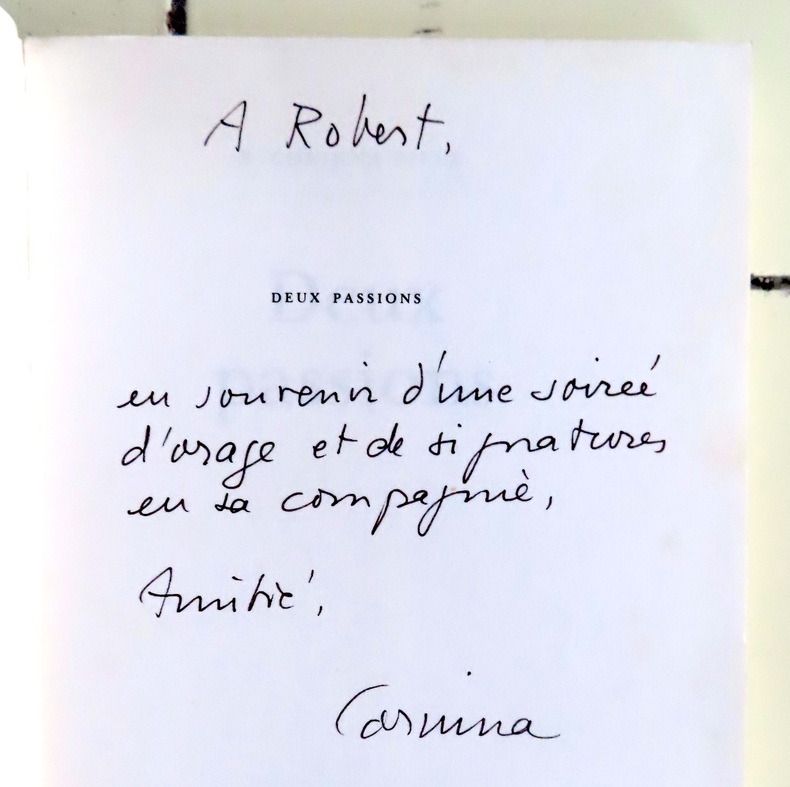 A Robert,
DEUX PASSIONS
en souvenir d'une soirée
d'orage et de signatures
en sa compagnie,
Amitié,
Corinna